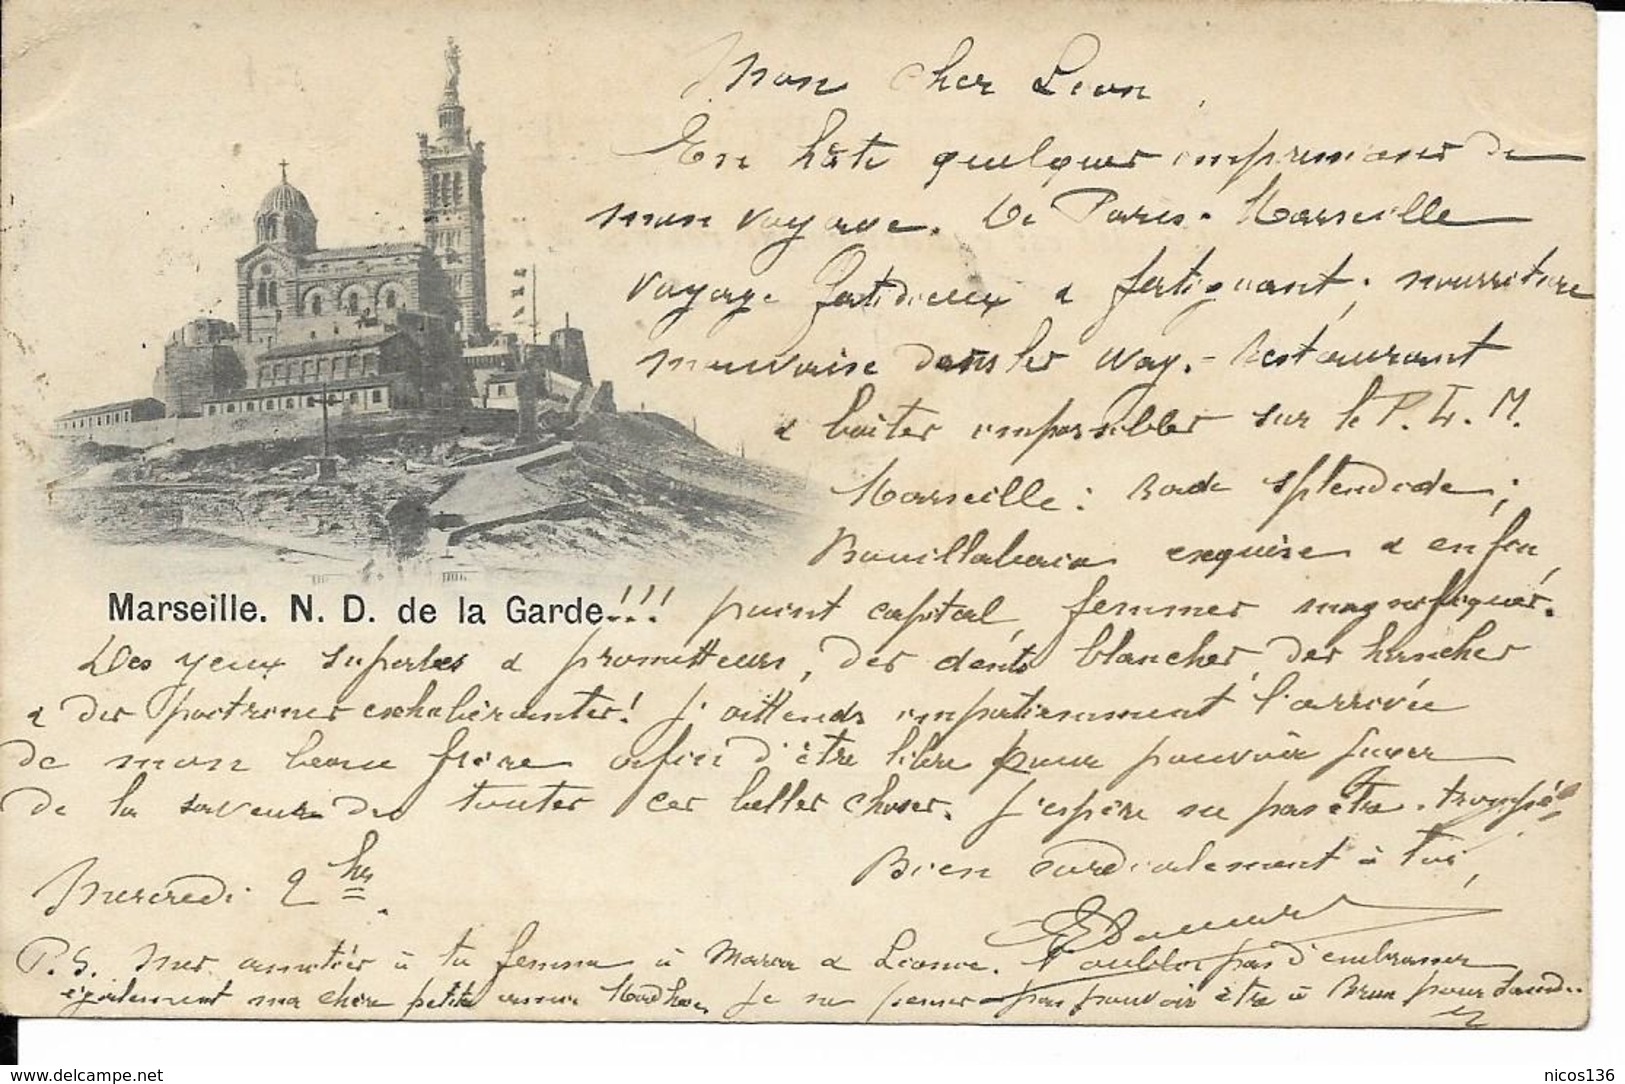 Mon cher Léon,
En hâte quelques impressions de
mon voyage. De Paris-Marseille
voyage fastidieux & fatiguant; nourriture
mauvaise dans les Wag.-Restaurant
& boîtes impossibles sur le P. L. M.
Marseille: Rade splendide;
Bouillabaise exquise & enfin,
Marseille. N. D. de la Garde!!! point capital, femmes magnifiques.
Des yeux superbes & prometteurs, des dents blanches, des hanches
& des poitrines exhubérantes! J'attends impatiemment l'arrivée
de mon beau frère afin d'être libre pour pouvoir juger
de la saveur de toutes ces belles choses. J'espère ne pas être trompé!
Bien cordialement à toi,
Mercredi 2 hrs.
P.S. Mes amitiés à ta femme à & Léonie. N'oublie pas d'embrasser
également ma chère petite amie Je ne pense pas pouvoir être à Brux pour
nicos136
http://www.delcampe.net